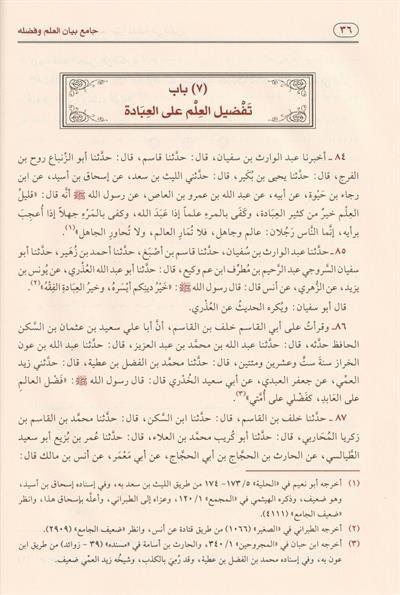 ٣٦
جامع بيان العلم وفضله
(٧) باب
تَفْضيل العِلْم على العِبَادة
٨٤ ـ أخبرنا عبد الوارث بن سفيان، قال: حدَّثنا قاسم، قال: حدَّثنا أبو الزِّنباع روح بن
الفرج، قال: حدَّثنا يحيى بن بُكَير، قال: حدَّثني الليث بن سعد، عن إسحاق بن أسيد، عن ابن
رجاء بن حَيْوة، عن أبيه، عن عبد الله بن عمرو بن العاص، عن رسول الله ﷺ أنَّه قال: «قليلُ
العِلْم خيرٌ من كثير العِبَادة، وكَفَى بالمرءِ علماً إذا عَبَدَ الله، وكفى بالمَرْءِ جهلاً إذا أُعجِبَ
برأيه، إنَّما النَّاس رَجُلان: عالم وجاهل، فلا تُمَار العالم، ولا تُحاور الجاهل»(١).
٨٥ ـ حدَّثنا عبد الوارث بن سُفيان، حدَّثنا قاسم بن أصْبَغ، حدَّثنا أحمد بن زُهَير، حدَّثنا أبو
سفيان السروجي عبد الرَّحيم بن مُطرِّف ابن عم وكيع، قال: حدَّثنا أبو عبد الله العُذْري، عن يُونس بن
يزيد، عن الزُّهري، عن أنس قال: قال رسول الله ﷺ: «خَيْرُ دينِكم أيْسَرُه، وخيرُ العِبَادةِ الفِقْهُ»(٢).
قال أبو سفيان: ويُكره الحديث عن العُذْري.
٨٦ ـ وقرأتُ على أبي القاسم خلف بن القاسم، أنَّ أبا علي سعيد بن عثمان بن السَّكن
الحافظ حدَّثه، قال: حدَّثنا عبد الله بن محمَّد بن عبد العزيز، قال: حدَّثنا عبد الله بن عون
الخراز سنةَ ستّ وعشرين ومئتين، قال: حدَّثنا محمَّد بن الفضل بن عطية، قال: حدَّثني زيد
العمِّي، عن جعفر العبدي، عن أبي سعيد الخُدْري قال: قال رسول الله ﷺ: «فَضْل العالم
على العَابد، كفَضْلي على أُمَّتي»(٣).
٨٧ ـ حدَّثنا خلف بن القاسم، قال: حدَّثنا ابن السَّكن، قال: حدَّثنا محمَّد بن القاسم بن
زكريا المُحَاربي، قال: حدَّثنا أبو كُريب محمَّد بن العلاء، قال: حدَّثنا عُمر بن بُزيع أبو سعيد
الطَّيالسي، عن الحارث بن الحجَّاج بن أبي الحجَّاج، عن أبي مَعْمَر، عن أنس بن مالك قال:
(١) أخرجه أبو نعيم في «الحلية» ٥/ ١٧٣ - ١٧٤ من طريق الليث بن سعد به، وفي إسناده إسحاق بن أسيد،
وهو ضعيف، وذكره الهيثمي في «المجمع» ١/ ١٢٠، وعزاه إلى الطبراني، وأعلَّه بإسحاق هذا، وانظر
«ضعيف الجامع» (٤١١١).
(٢) أخرجه الطبراني في «الصغير» (١٠٦٦) من طريق قتادة عن أنس، وانظر «ضعيف الجامع» (٢٩٠٩).
(٣) أخرجه ابن حبان في «المجروحين» ١/ ٣٤٠، والحارث بن أسامة في «مسنده» (٣٩ - زوائد) من طريق ابن
عون به، وفي إسناده محمد بن الفضل بن عطية، وقد رُمِيَ بالكذب، وشيخُه زيد العمِّي ضعيف.